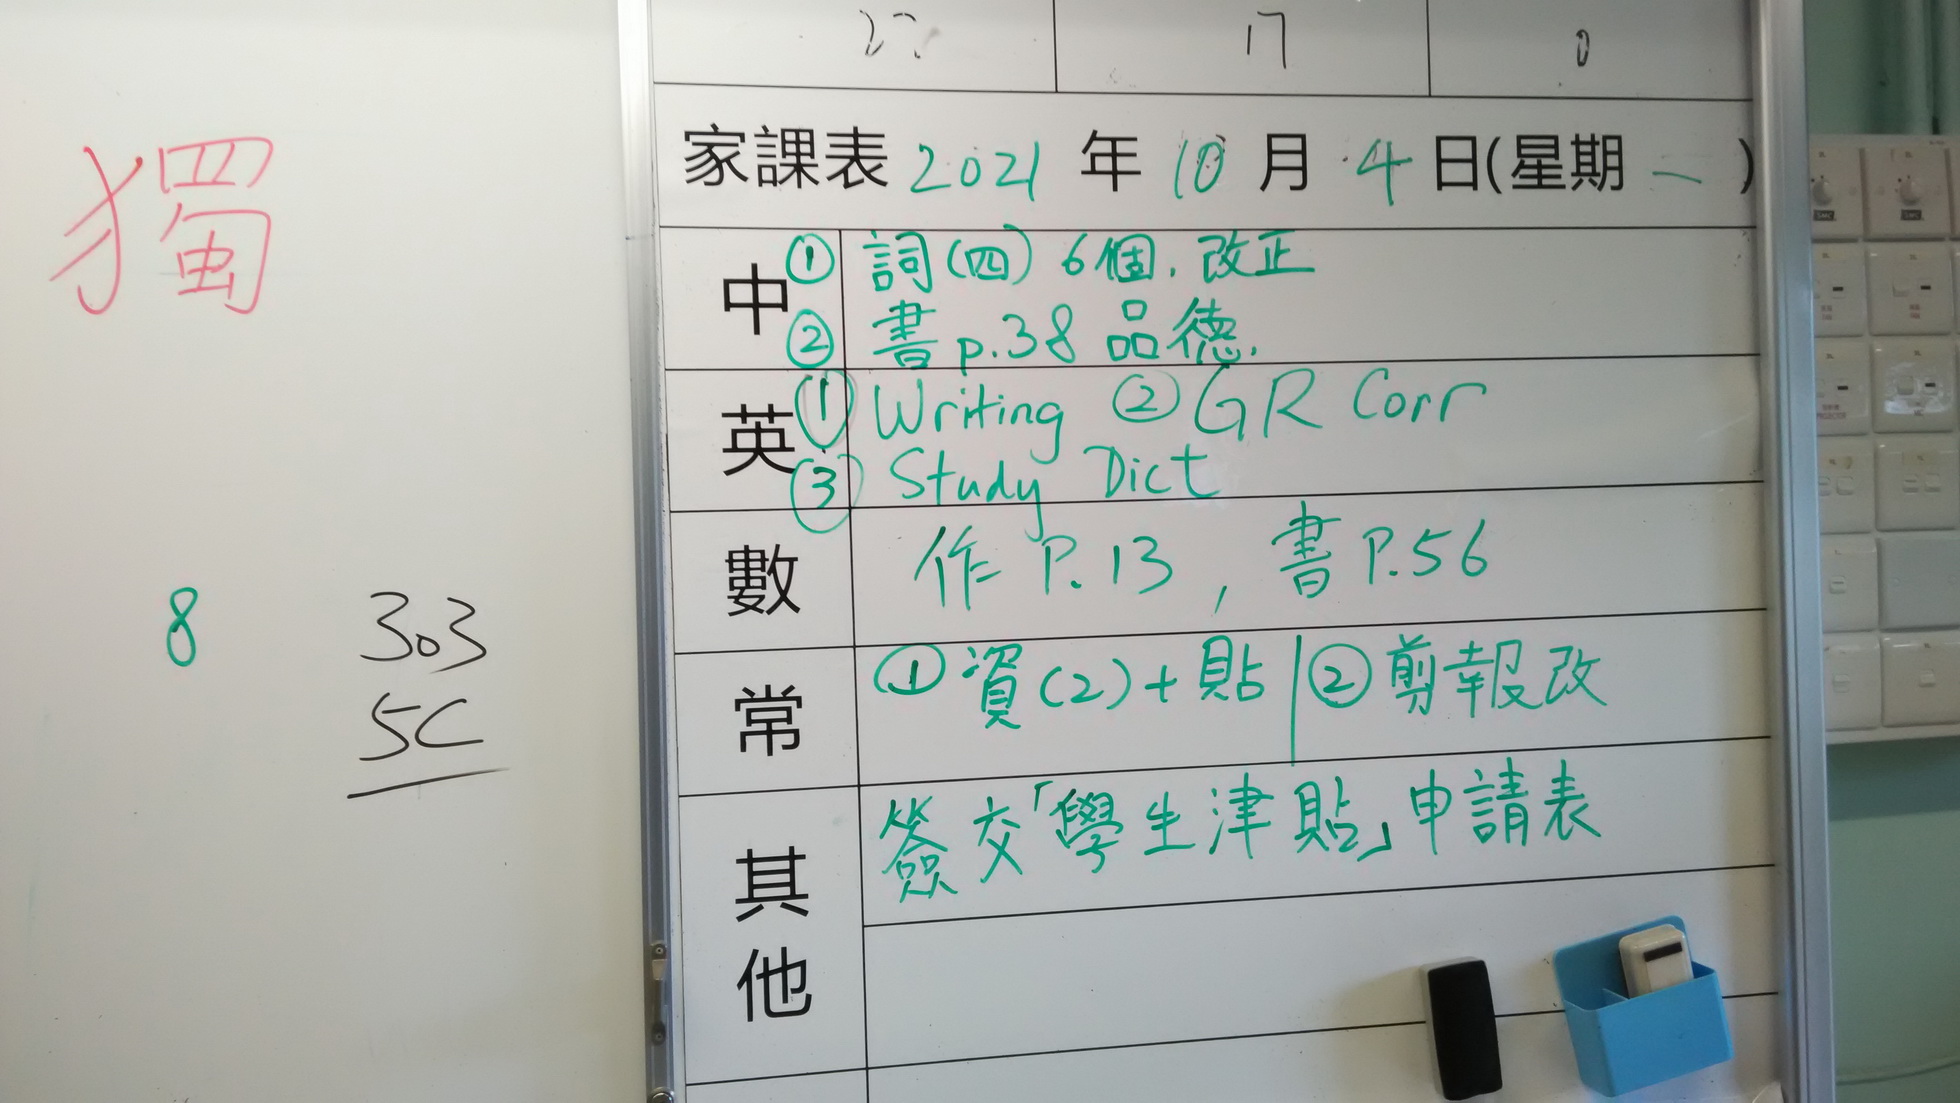 獨
8
303
5C
17
0
家課表 2021 年 10 月 4 日(星期 一 )
中 ① 詞(四) 6個. 改正
② 書 p.38 品德.
英 ① Writing ② GR Corr
③ Study Dict
數 作 P.13 , 書 P.56
常 ① 資(2) + 貼 | ② 剪報改
其他 簽交「學生津貼」申請表